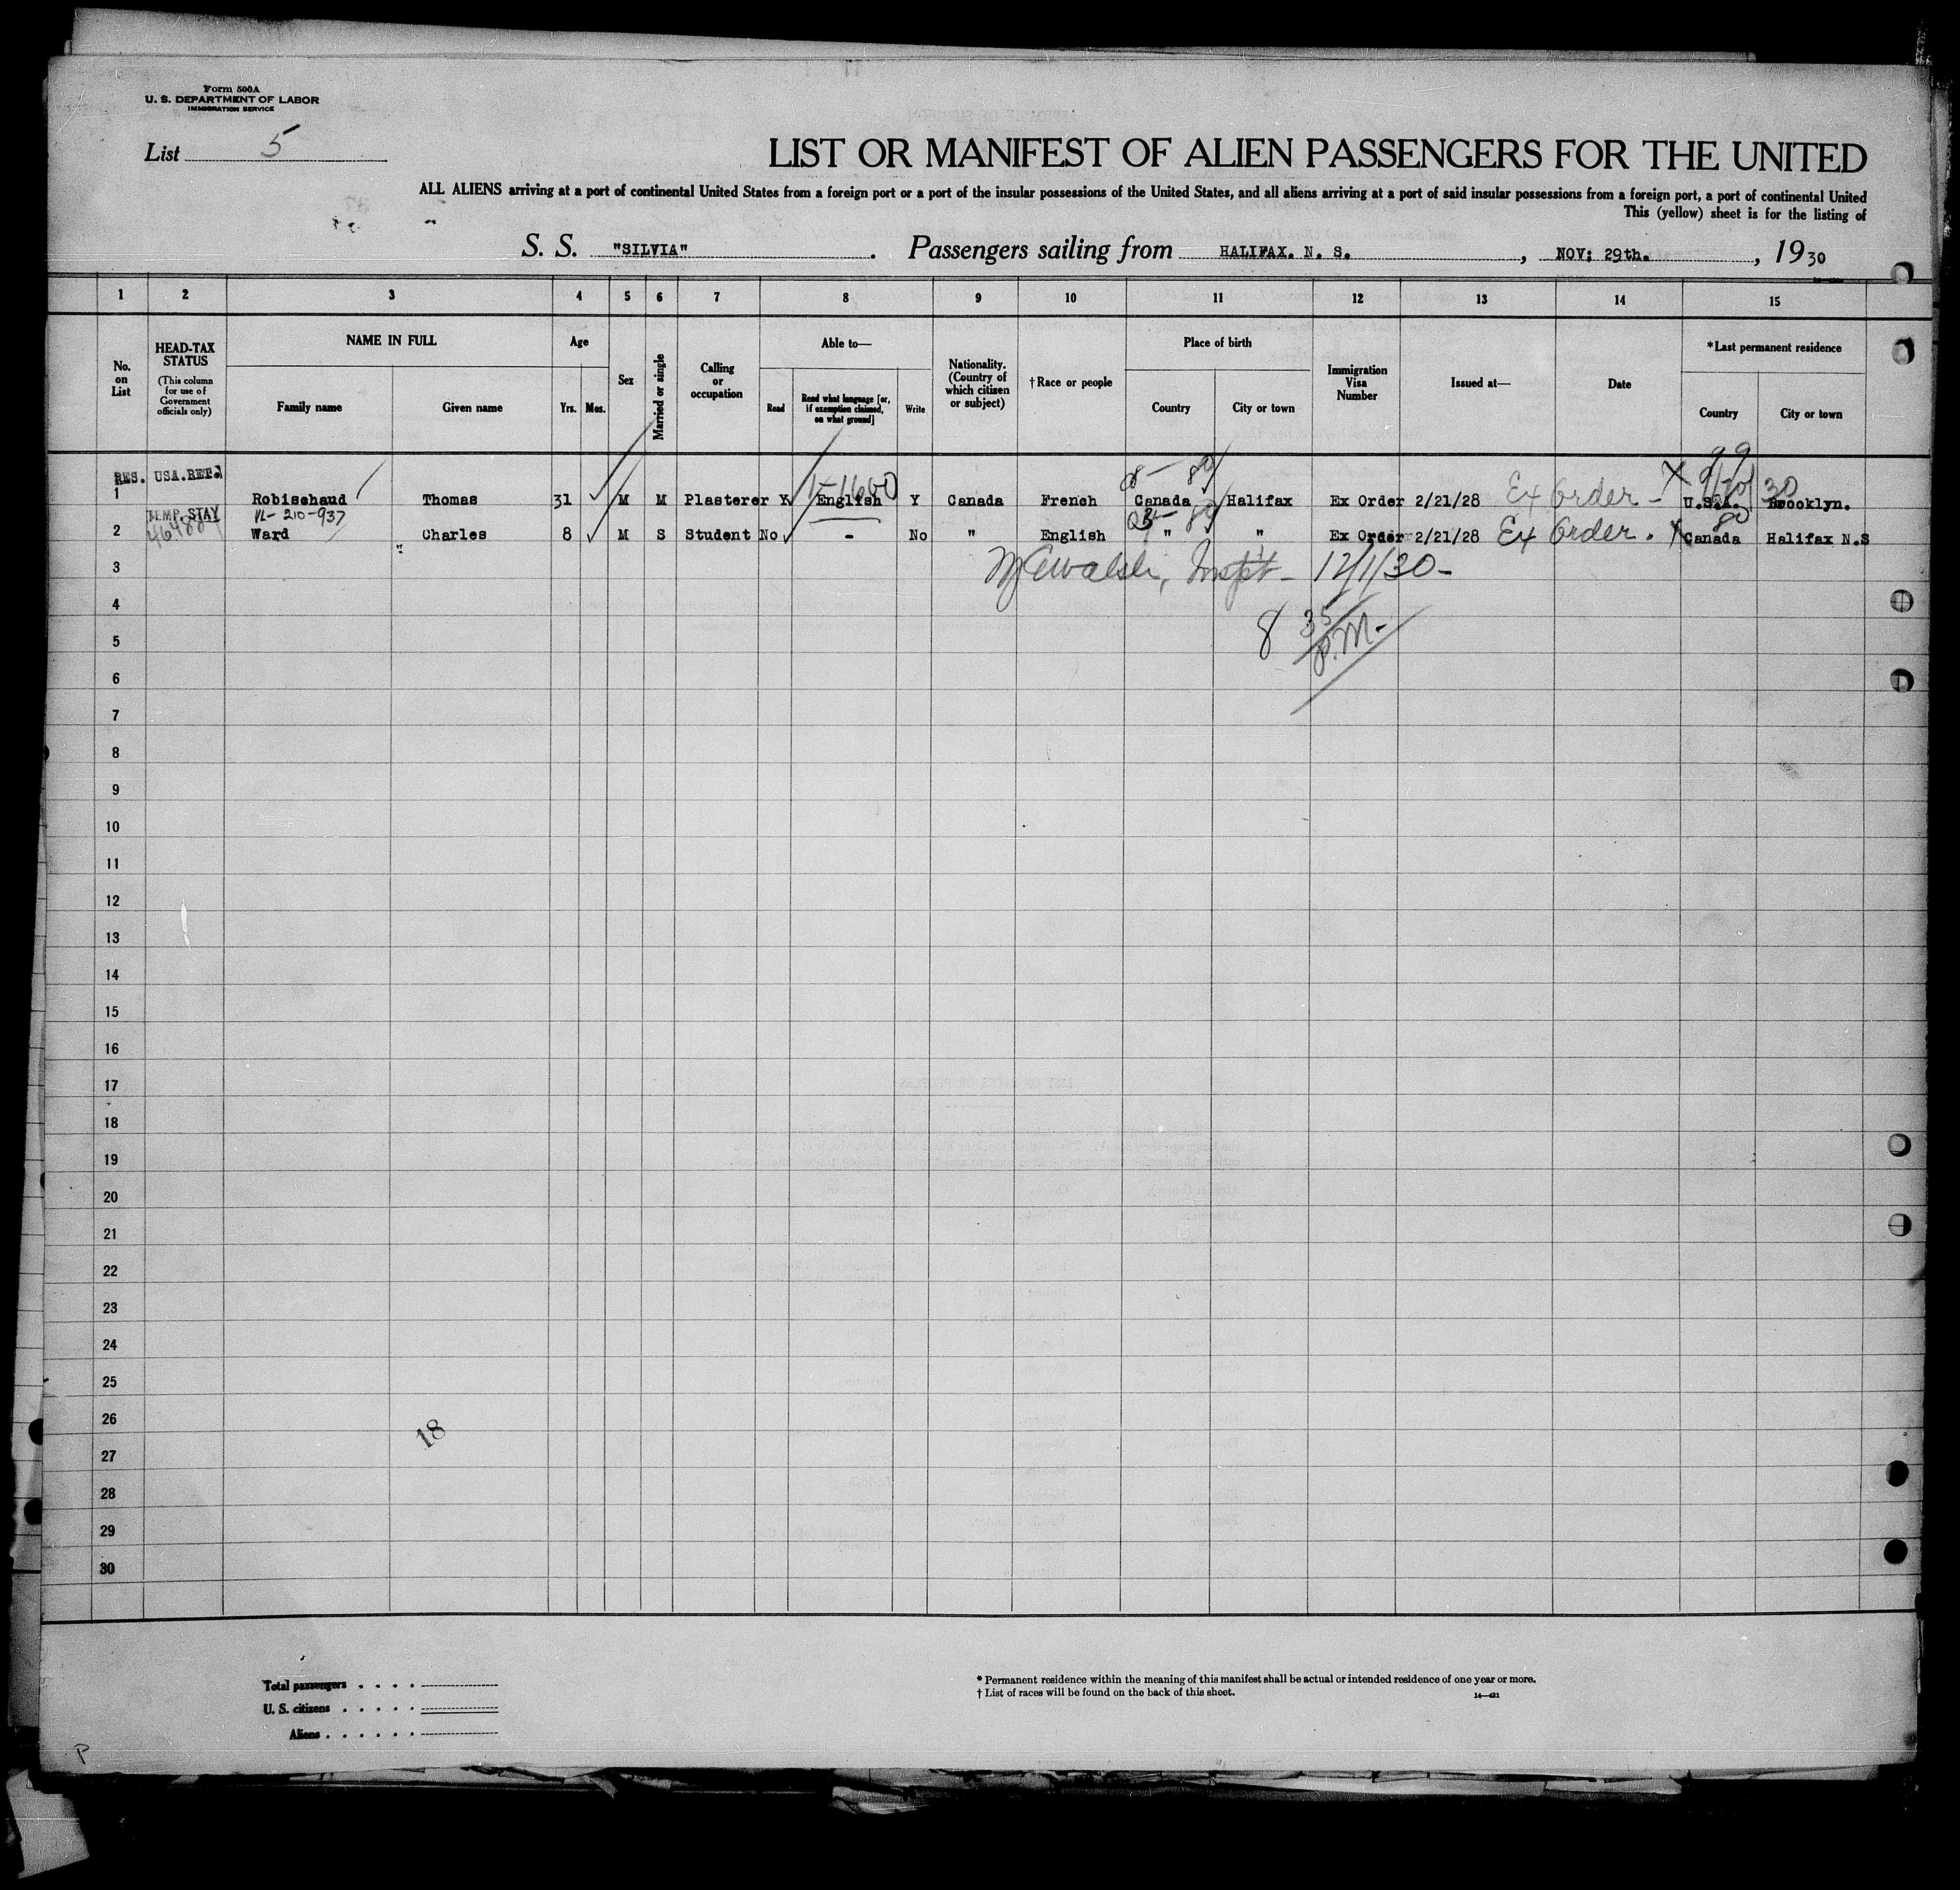 Form 500A
U. S. DEPARTMENT OF LABOR
IMMIGRATION SERVICE
List 5
LIST OR MANIFEST OF ALIEN PASSENGERS FOR THE UNITED
ALL ALIENS arriving at a port of continental United States from a foreign port or a port of the insular possessions of the United States, and all aliens arriving at a port of said insular possessions from a foreign port, a port of continental United
This (yellow) sheet is for the listing of
S. S. "SILVIA" . Passengers sailing from HALIFAX. N. S. , NOV; 29th. , 1930
1 2 3 4 5 6 7 8 9 10 11 12 13 14 15
No. on List
HEAD-TAX STATUS
(This column for use of Government officials only)
NAME IN FULL
Family name Given name
Age
Yrs. Mos.
Sex
Married or single
Calling or occupation
Able to—
Read Read what language [or, if exemption claimed, on what ground] Write
Nationality. (Country of which citizen or subject)
†Race or people
Place of birth
Country City or town
Immigration Visa Number
Issued at—
Date
*Last permanent residence
Country City or town
RES. USA.RET.
1 Robischaud Thomas 31 M M Plasterer Y English Y Canada French Canada Halifax Ex Order 2/21/28 Ex Order - U.S.A. Brooklyn.
TEMP.STAY VL-210-937
2 Ward Charles 8 M S Student No - No " English " " Ex Order 2/21/28 Ex Order. Canada Halifax N.S
3 Inspt- 12/1/30-
4
8 35 P.M.-
5
6
7
8
9
10
11
12
13
14
15
16
17
18
19
20
21
22
23
24
25
26
18
27
28
29
30
Total passengers . . . .
U. S. citizens . . . . .
Aliens . . . . . .
* Permanent residence within the meaning of this manifest shall be actual or intended residence of one year or more.
† List of races will be found on the back of this sheet. 14—421
P